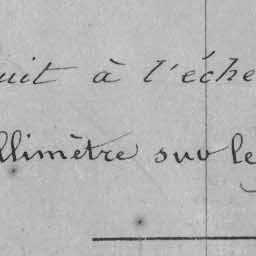 uit à l'éche
llimètre sur le